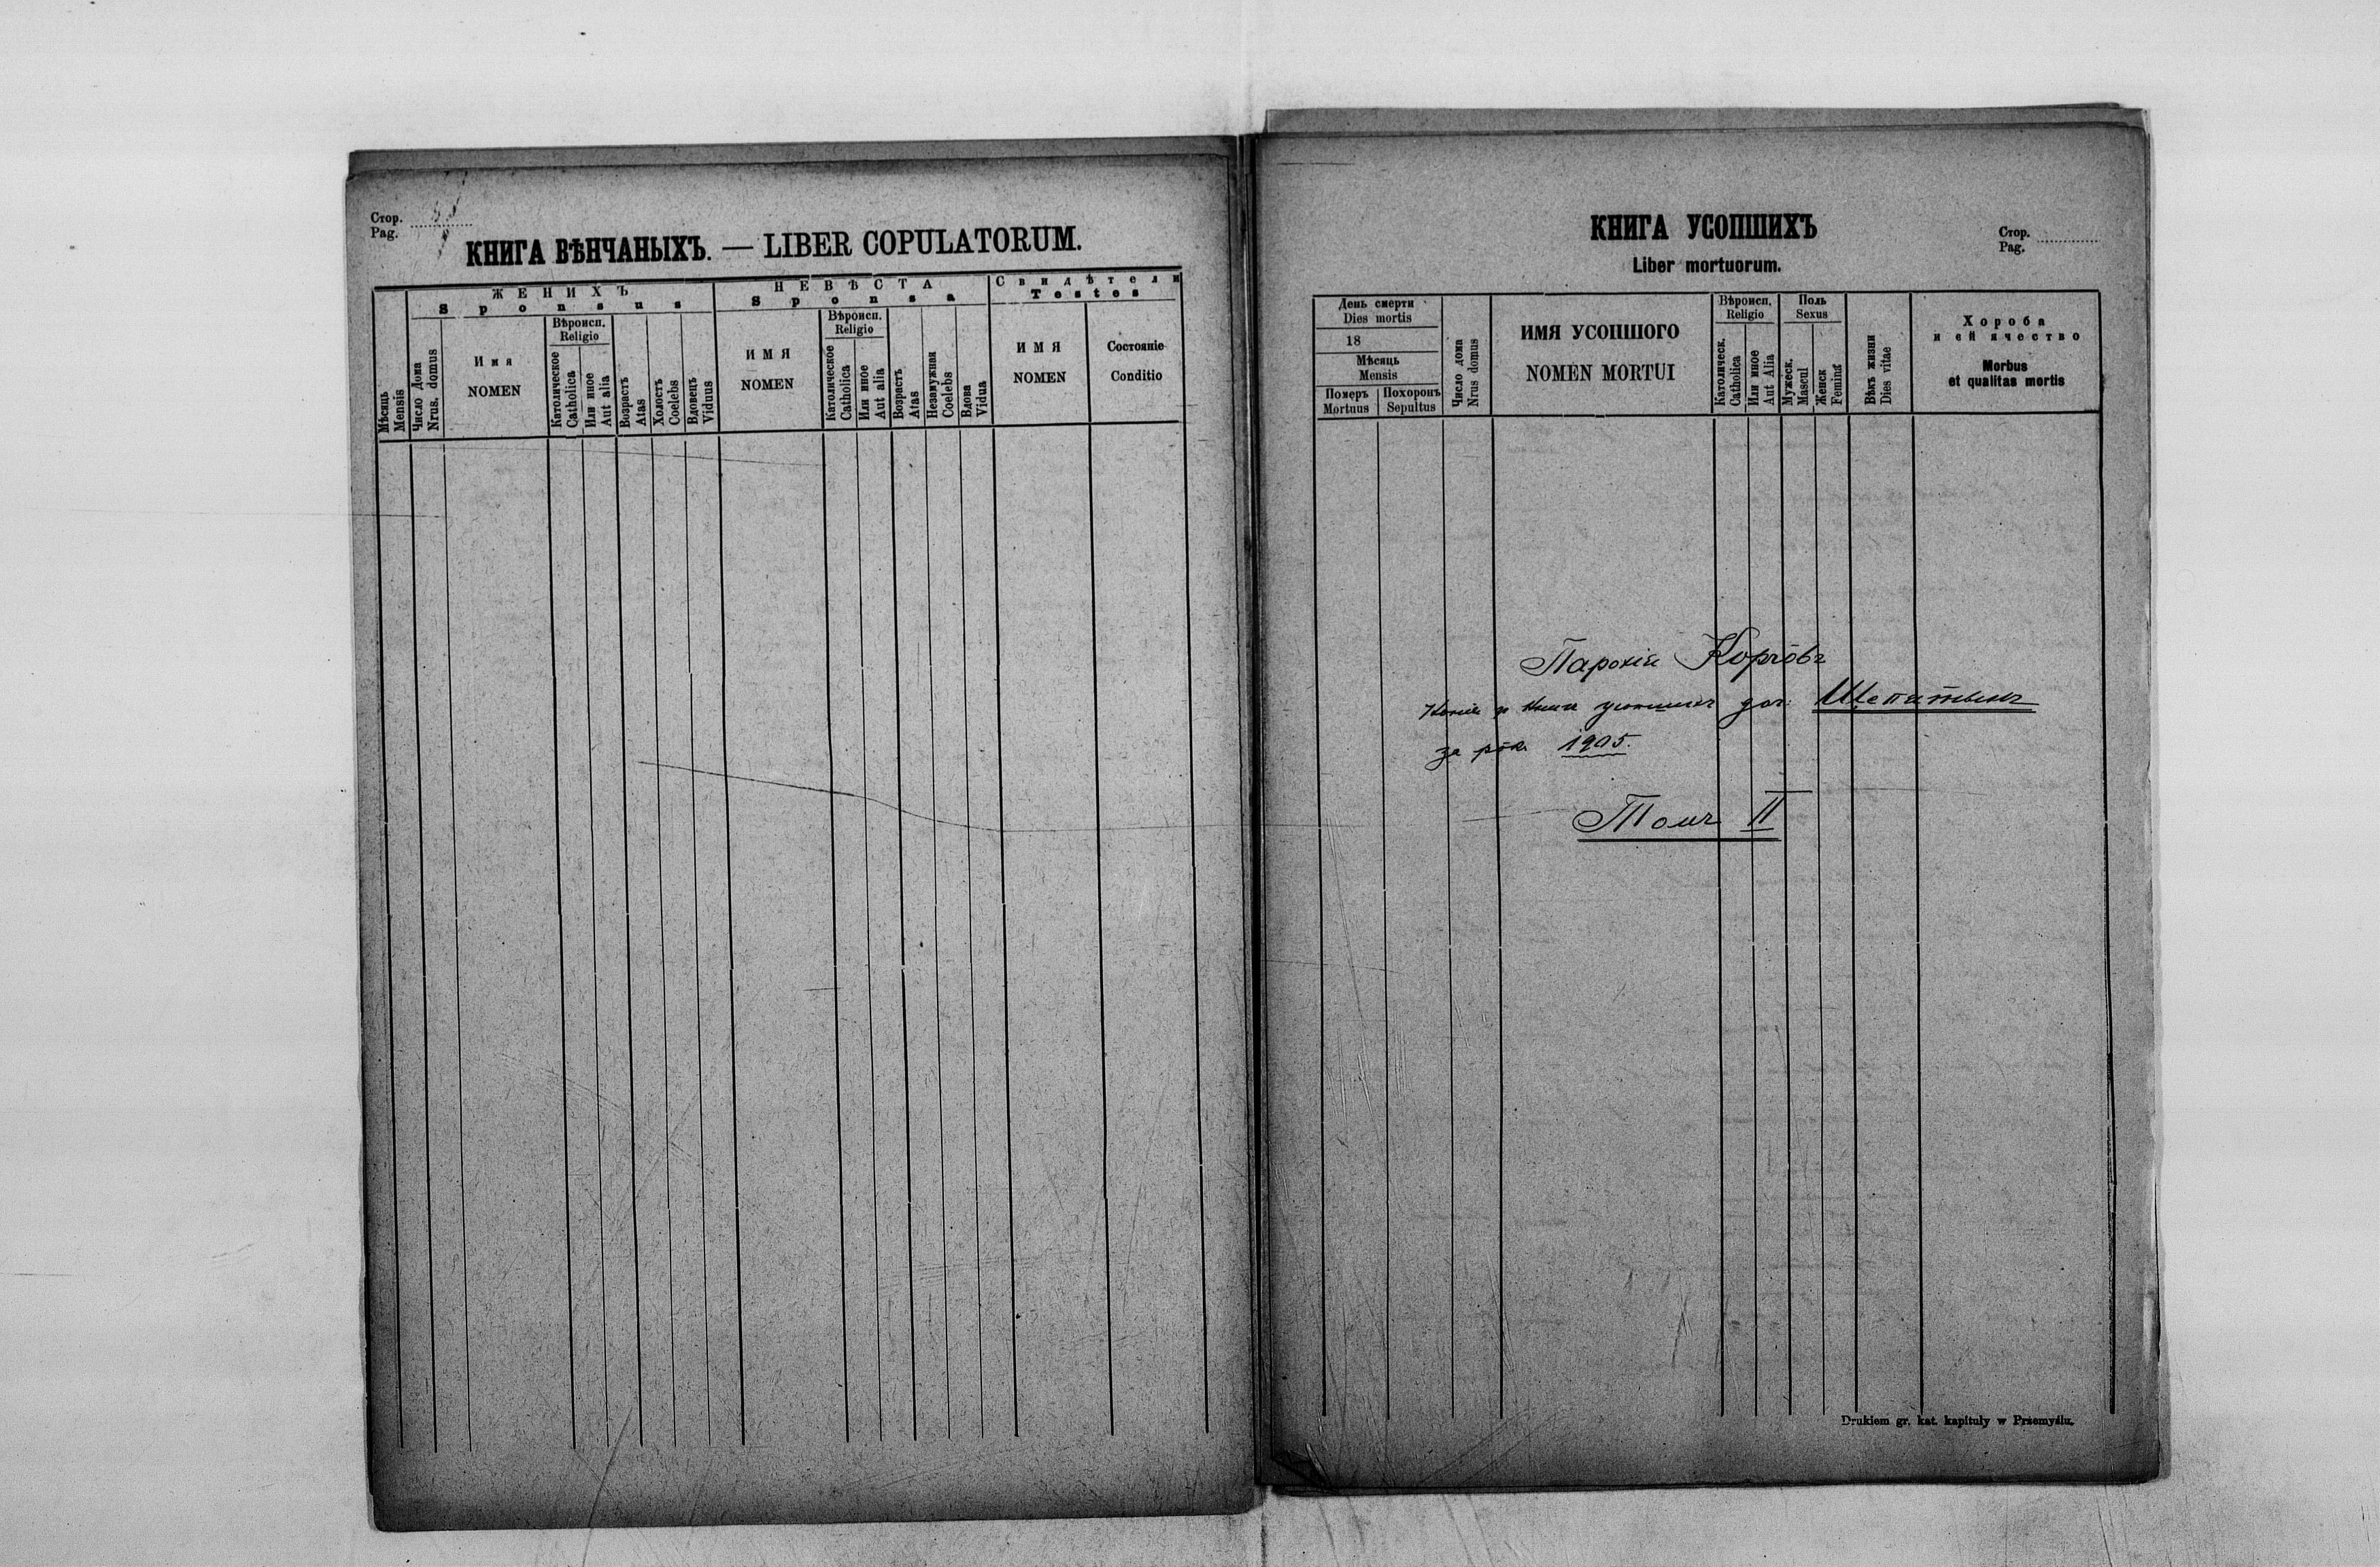 Стор.
Pag.
КНИГА ВѢНЧАНЫХЪ. — LIBER COPULATORUM.
Мѣсяць
Mensis
ЖЕНИХЪ
Sponsus
Число Дома
Nrus. domus
Имя
NOMEN
Вѣроисп.
Religio
Католическое
Catholica
Или иное
Aut alia
Возрастъ
Atas
Холостъ
Coelebs
Вдовецъ
Viduus
НЕВѢСТА
Sponsa
ИМЯ
NOMEN
Вѣроисп.
Religio
Католическое
Catholica
Или иное
Aut alia
Возрастъ
Atas
Незамужная
Coelebs
Вдова
Vidua
Свидѣтели
Testes
ИМЯ
NOMEN
Состояніе
Conditio
КНИГА УСОПШИХЪ
Liber mortuorum.
Стор.
Pag.
День смерти
Dies mortis
18
Мѣсяць
Mensis
Померъ
Mortuus
Похоронъ
Sepultus
Число дома
Nrus domus
ИМЯ УСОПШОГО
NOMEN MORTUI
Вѣроисп.
Religio
Католическ.
Catholica
Или иное
Aut Alia
Поль
Sexus
Мужеск.
Mascul
Женск
Femină
Вѣкъ жизни
Dies vitae
Хороба
и ей ячество
Morbus
et qualitas mortis
Парохія Корчôвъ
Копія усопшихъ доч. Щепятынъ
за рôк 1905.
Томъ II
Drukiem gr. kat. kapituły w Przemyślu.